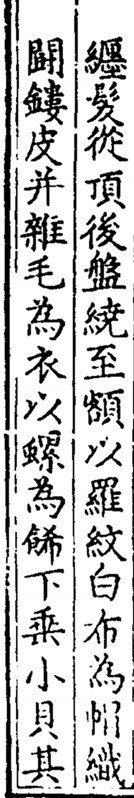 纒髮從頂後盤繞至額以羅紋白布為㡌織
鬪鏤皮并雜毛為衣以螺為餙下乗小貝其